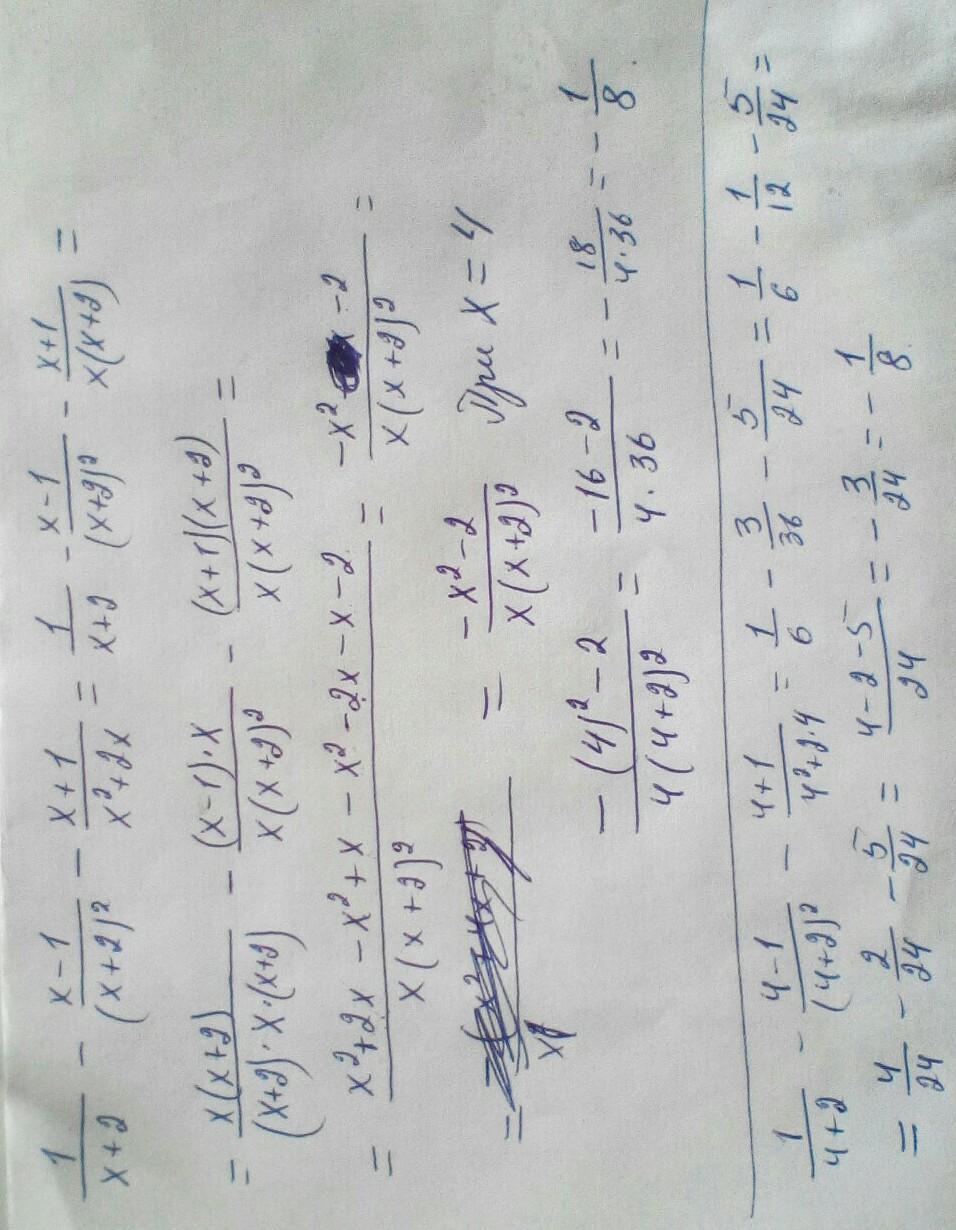 1/(x+2) - (x-1)/(x+2)² - (x+1)/(x²+2x) = 1/(x+2) - (x-1)/(x+2)² - (x+1)/(x(x+2)) =
= x(x+2)/((x+2)·x·(x+2)) - (x-1)·x/(x(x+2)²) - (x+1)(x+2)/(x(x+2)²) =
= (x²+2x-x²+x-x²-2x-x-2)/(x(x+2)²) = (-x²-2)/(x(x+2)²) =
= = (-x²-2)/(x(x+2)²) При x=4
(-(4)²-2)/(4(4+2)²) = (-16-2)/(4·36) = -18/(4·36) = -1/8
1/(4+2) - (4-1)/(4+2)² - (4+1)/(4²+2·4) = 1/6 - 3/36 - 5/24 = 1/6 - 1/12 - 5/24 =
= 4/24 - 2/24 - 5/24 = (4-2-5)/24 = -3/24 = -1/8